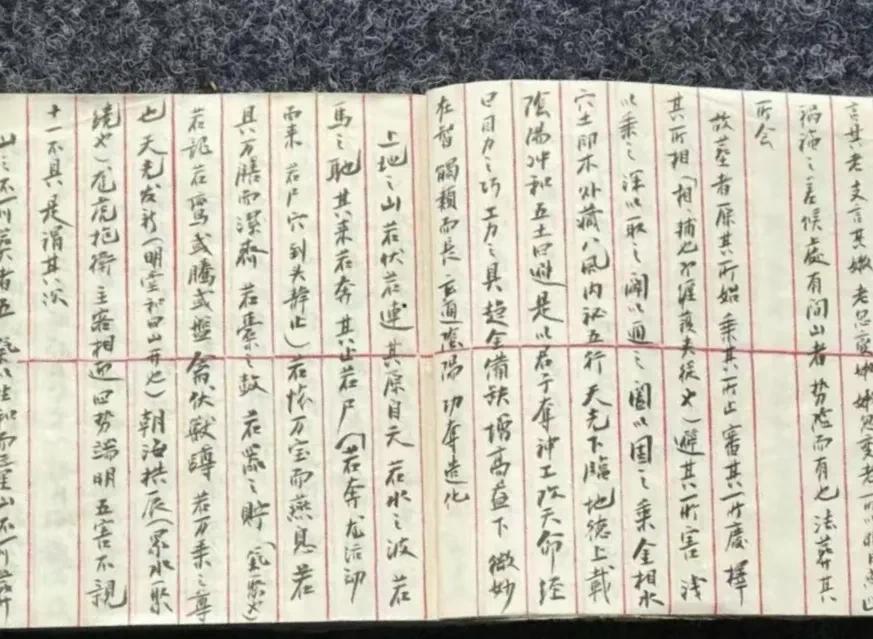 言其老支言其嫩老忌變嫩
禍福之差候處有间山者势险而有也法葬其
所会
故葬者原其所始乘其所止審其所廢擇
其所相(相捕也 护夹從也)避其所害浅
以乘之深以取之闢以通之阖以固之乘金相水
穴土印木外藏八風内秘五行天光下臨地德上載
陰陽冲和五土四避是以君子奪神工改天命经
曰目力之巧工力之具趋全備缺增高益下微妙
在智觸類而長玄通陰陽功奪造化
上地之山若伏若連其原自天若水之波若
馬之驰其来若奔其止若尸(若奔龙活动
而来若尸穴到头静止)若怀万宝而燕息若
具万膳而潔齊若橐之鼓若器之貯(氣聚也)
若龍若鸞或騰或盤禽伏獸蹲若万乘之尊
也天光发新(明堂和四山开也)朝海拱辰(眾水聚
繞也)龙虎抱衛主客相迎四势端明五害不親
十一不具是謂其次
山之不可葬者五氣以生和而童山不可葬